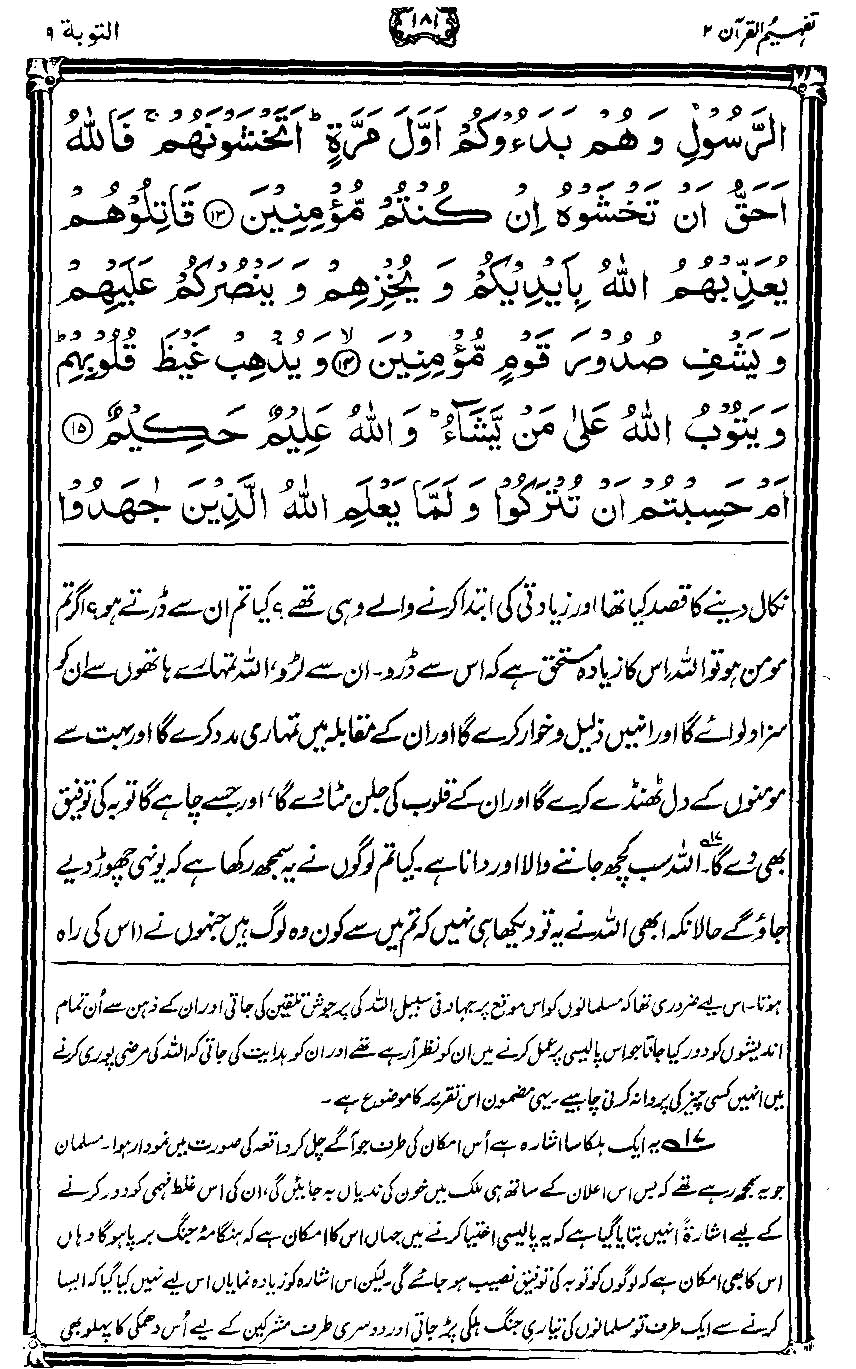 تفہیم القرآن ۲
۱۸۱
التوبة ۹
الرَّسُوْلِ وَ هُمْ بَدَءُوْكُمْ اَوَّلَ مَرَّةٍ ؕ اَتَخْشَوْنَهُمْ ۚ فَاللّٰهُ
اَحَقُّ اَنْ تَخْشَوْهُ اِنْ كُنْتُمْ مُّؤْمِنِيْنَ ﴿۱۳﴾ قَاتِلُوْهُمْ
يُعَذِّبْهُمُ اللّٰهُ بِاَيْدِيْكُمْ وَ يُخْزِهِمْ وَ يَنْصُرْكُمْ عَلَيْهِمْ
وَ يَشْفِ صُدُوْرَ قَوْمٍ مُّؤْمِنِيْنَ ﴿۱۴﴾ۙ وَ يُذْهِبْ غَيْظَ قُلُوْبِهِمْ ؕ
وَ يَتُوْبُ اللّٰهُ عَلٰى مَنْ يَّشَآءُ ؕ وَ اللّٰهُ عَلِيْمٌ حَكِيْمٌ ﴿۱۵﴾
اَمْ حَسِبْتُمْ اَنْ تُتْرَكُوْا وَ لَمَّا يَعْلَمِ اللّٰهُ الَّذِيْنَ جٰهَدُوْا
نکال دینے کا قصد کیا تھا اور زیادتی کی ابتدا کرنے والے وہی تھے؟ کیا تم ان سے ڈرتے ہو؟ اگر تم
مومن ہو تو اللہ اس کا زیادہ مستحق ہے کہ اس سے ڈرو۔ ان سے لڑو، اللہ تمہارے ہاتھوں سے ان کو
سزا دلوائے گا اور انہیں ذلیل و خوار کرے گا اور ان کے مقابلہ میں تمہاری مدد کرے گا اور بہت سے
مومنوں کے دل ٹھنڈے کرے گا اور ان کے قلوب کی جلن مٹا دے گا، اور جسے چاہے گا توبہ کی توفیق
بھی دے گا۔۱۷ اللہ سب کچھ جاننے والا اور دانا ہے۔ کیا تم لوگوں نے یہ سمجھ رکھا ہے کہ یونہی چھوڑ دیے
جاؤ گے حالانکہ ابھی اللہ نے یہ تو دیکھا ہی نہیں کہ تم میں سے کون وہ لوگ ہیں جنہوں نے (اس کی راہ
ہوتا۔ اس لیے ضروری تھا کہ مسلمانوں کو اس موقع پر جہاد فی سبیل اللہ کی پرجوش تلقین کی جاتی اور ان کے ذہن سے اُن تمام
اندیشوں کو دور کیا جاتا جو اس پالیسی پر عمل کرنے میں ان کو نظر آرہے تھے اور ان کو ہدایت کی جاتی کہ اللہ کی مرضی پوری کرنے
میں انہیں کسی چیز کی پروا نہ کرنی چاہیے۔ یہی مضمون اس تقریر کا موضوع ہے۔
۱۷ یہ ایک ہلکا سا اشارہ ہے اُس امکان کی طرف جو آگے چل کر واقعہ کی صورت میں نمودار ہوا۔ مسلمان
جو یہ سمجھ رہے تھے کہ بس اس اعلان کے ساتھ ہی ملک میں خون کی ندیاں بہ جائیں گی، ان کی اس غلط فہمی کو دور کرنے
کے لیے اشارۃً انہیں بتایا گیا ہے کہ یہ پالیسی اختیار کرنے میں جہاں اس کا امکان ہے کہ ہنگامۂ جنگ برپا ہوگا وہاں
اس کا بھی امکان ہے کہ لوگوں کو توبہ کی توفیق نصیب ہو جائے گی۔ لیکن اس اشارہ کو زیادہ نمایاں اس لیے نہیں کیا گیا کہ ایسا
کرنے سے ایک طرف تو مسلمانوں کی تیاریِ جنگ ہلکی پڑ جاتی اور دوسری طرف مشرکین کے لیے اُس دھمکی کا پہلو بھی